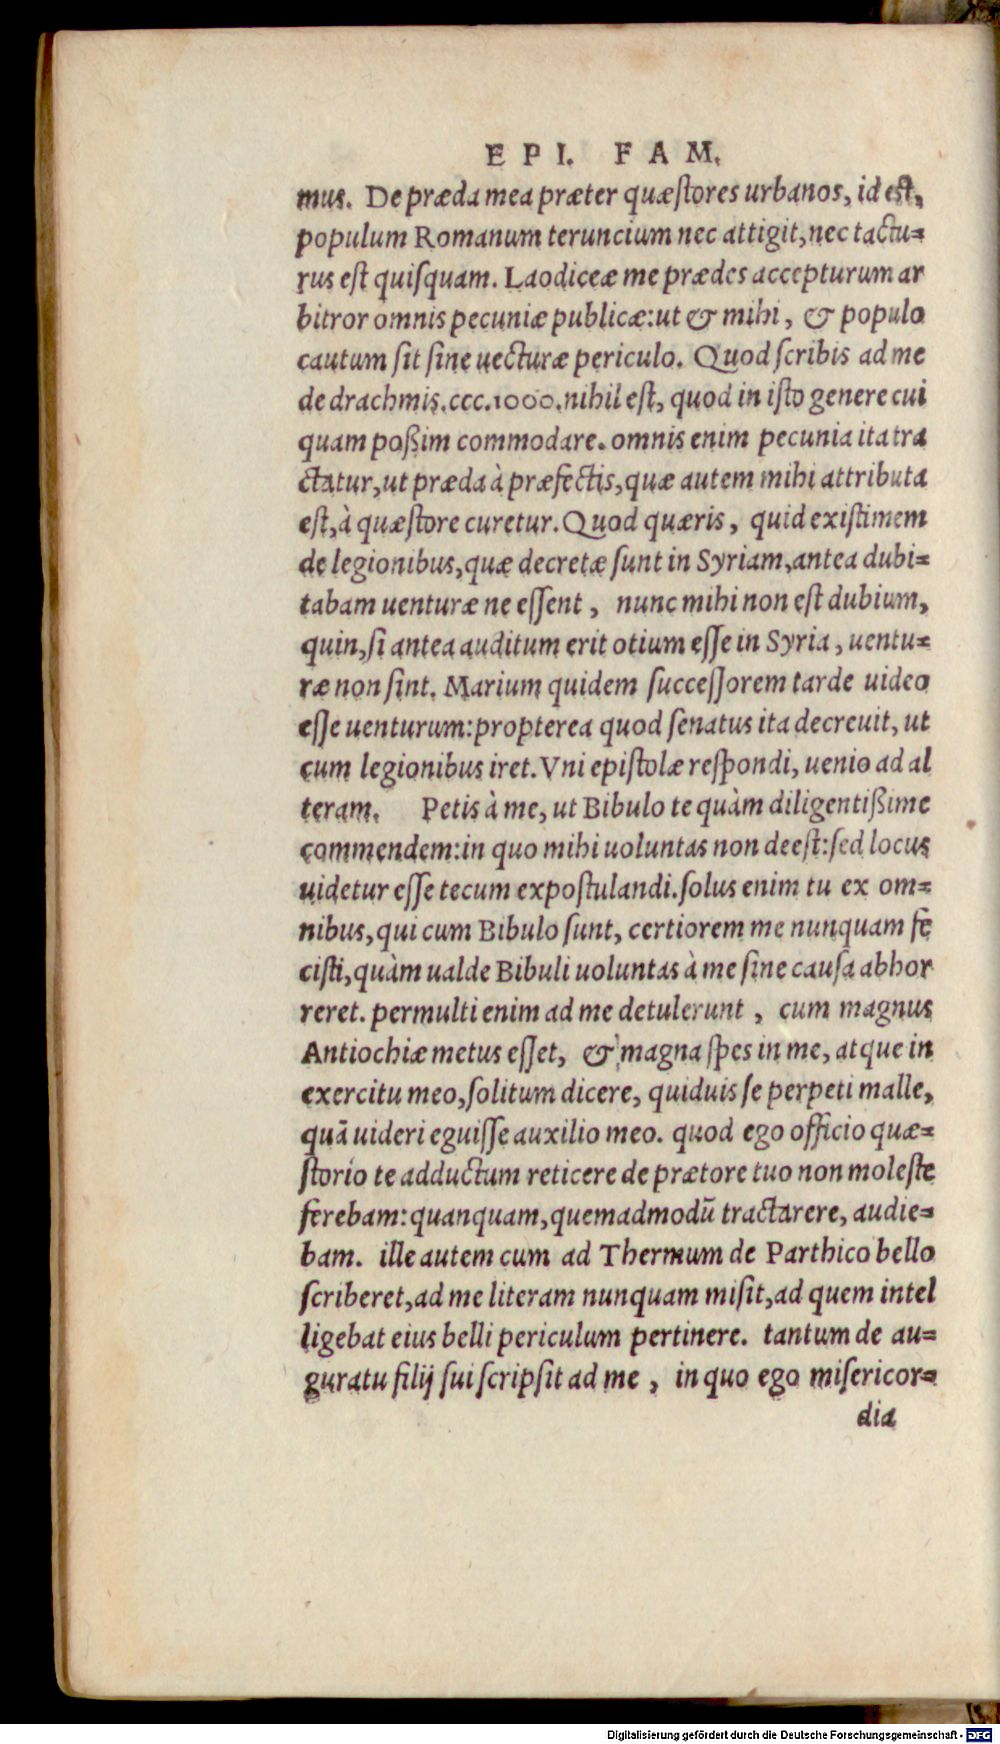 EPI. FAM.
mus. De præda mea præter quæſtores urbanos, id eſt,
populum Romanum teruncium nec attigit, nec tactu=
rus eſt quiſquam. Laodiceæ me prædes accepturum ar
bitror omnis pecuniæ publicæ: ut & mihi, & populo
cautum ſit ſine uecturæ periculo. Quod ſcribis ad me
de drachmis.ccc.1000.nihil eſt, quod in iſto genere cui
quam poßim commodare. omnis enim pecunia ita tra
ctatur, ut præda à præfectis, quæ autem mihi attributa
eſt, à quæſtore curetur. Quod quæris, quid exiſtimem
de legionibus, quæ decretæ ſunt in Syriam, antea dubi=
tabam uenturæ ne eſſent, nunc mihi non eſt dubium,
quin, ſi antea auditum erit otium eſſe in Syria, uentu=
ræ non ſint. Marium quidem ſucceſſorem tarde uideo
eſſe uenturum: propterea quod ſenatus ita decreuit, ut
cum legionibus iret. Vni epiſtolæ reſpondi, uenio ad al
teram. Petis à me, ut Bibulo te quàm diligentißime
commendem: in quo mihi uoluntas non deeſt: ſed locus
uidetur eſſe tecum expoſtulandi. ſolus enim tu ex om=
nibus, qui cum Bibulo ſunt, certiorem me nunquam fe
ciſti, quàm ualde Bibuli uoluntas à me ſine cauſa abhor
reret. permulti enim ad me detulerunt, cum magnus
Antiochiæ metus eſſet, & magna ſpes in me, atque in
exercitu meo, ſolitum dicere, quiduis ſe perpeti malle,
quā uideri eguiſſe auxilio meo. quod ego officio quæ=
ſtorio te adductum reticere de prætore tuo non moleſte
ferebam: quanquam, quemadmodū tractarere, audie=
bam. ille autem cum ad Thermum de Parthico bello
ſcriberet, ad me literam nunquam miſit, ad quem intel
ligebat eius belli periculum pertinere. tantum de au=
guratu filij ſui ſcripſit ad me, in quo ego miſericor=
dia
Digitalisierung gefördert durch die Deutsche Forschungsgemeinschaft - DFG